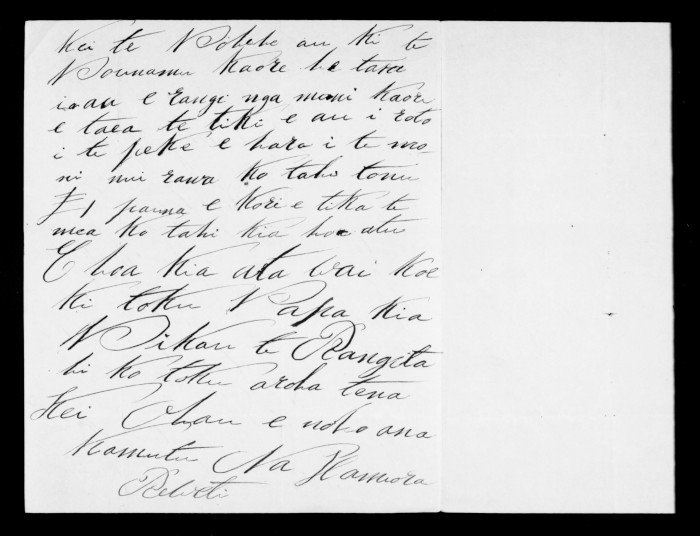 Kei te Pohehe au ki te
Pounamu kaore he taea
i au e rangi nga moni Kaore
e taea te tiki e au i roto
i te peke e hara i te mo-
ni nui rawa ko tahi tonu
£1 pauna e kore e tika te
mea ko tahi kia hoe atu
E hoa kia ata wai koe
ki toku Papa kia
Pikau te Rangita
hi ko toku aroha tena
kei Ohau e noho ana
Kamutu Na Hamiora